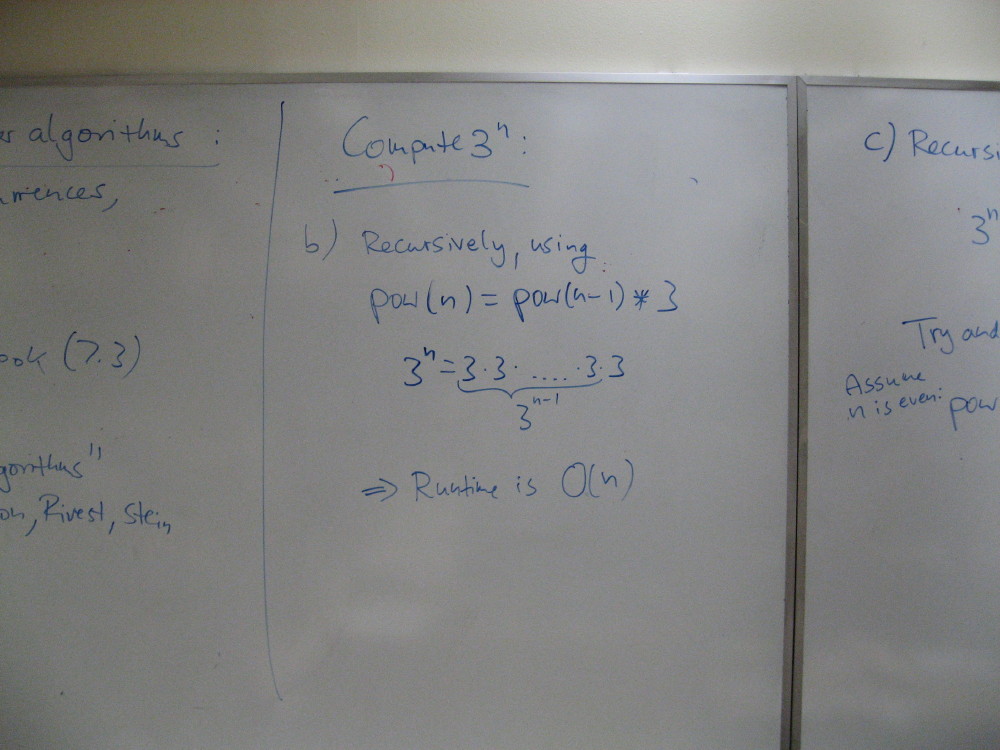 algorithms :
ook (7.3)
gorithms"
on, Rivest, Stein,
Compute 3^n:
b) Recursively, using
pow(n) = pow(n-1) * 3
3^n = 3·3· .... ·3·3
3^n-1
⇒ Runtime is O(n)
c) Recursi
3^n
Try and
Assume
n is even: pow